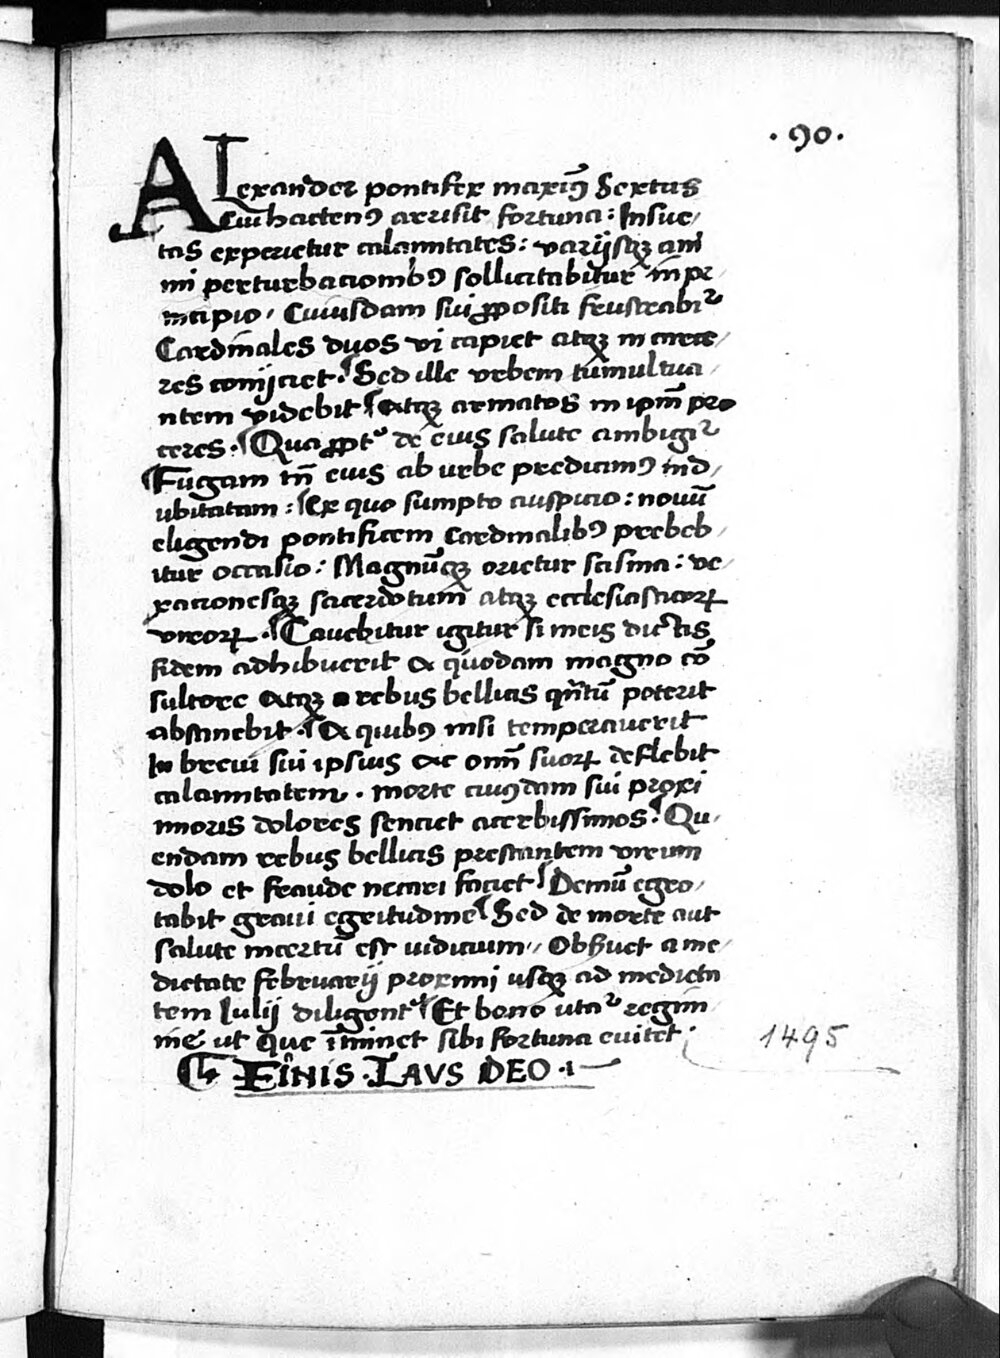 ·90·
ALexander pontifex maxim9 Sextus
Cui hacten9 arrisit fortuna: Insue/
tas experietur calamitates: varijsqꝫ ani
mi perturbacionib9 sollicitabitur in pr/
incipio, Cuiusdam sui ꝓpositi frustrabit᷑
Cardinales duos vi capiet atqꝫ in carce/
res conijciet. Sed ille vrbem tumultua/
ntem videbit Atqꝫ armatos in ip̄m pro
ceres. Qua ꝓpt᷑ de eius salute ambigit᷑
Fugam tn̄ eius ab urbe predicam9 ind/
ubitatam: Ex quo sumpto auspicio: nouū
eligendi pontificem Cardinalib9 prebeb/
itur occasio: Magnūqꝫ orietur scisma: ve/
xacionesqꝫ sacerdotum atqꝫ ecclesiasticorꝝ
virorꝝ. Cauebitur igitur si meis dictis
fidem adhibuerit & quodam magno cō
sultore atqꝫ rebus bellicis qn̄tū poterit
abstinebit. A quib9 nisi temperauerit
In breui sui ipsius ac om̄ suorꝝ deflebit
calamitatem. morte cuiusdam sui proxi
mioris dolores senciet acerbissimos. Qu/
endam rebus bellicis prestantem virum
dolo et fraude necari faciet Demū egro/
tabit graui egritudine Sed de morte aut
salute incertū est iudicium,, Obseruet a me/
dietate februarij proximi usqꝫ ad medieta
tem Iulij diligent᷑ Et bono utat᷑ regim
ine ut que īminet sibi fortuna euitet
1495
FINIS · LAVS DEO ·